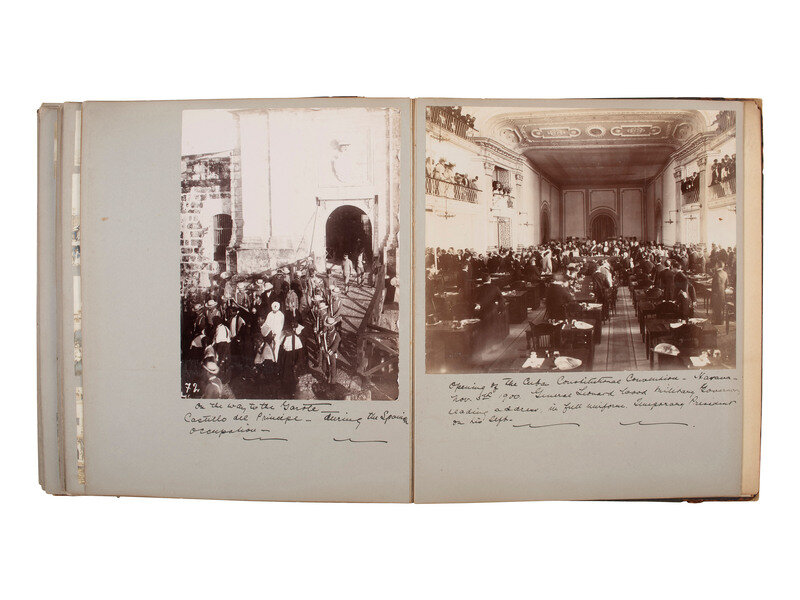 72
On the way to the Garote
Castillo del Principe - during the Spanish
occupation -
Opening of the Cuba Constitutional Convention - Havana -
Nov. 5th 1900. General Leonard Wood Military Governor
reading address in full uniform. Temporary President
on his left.